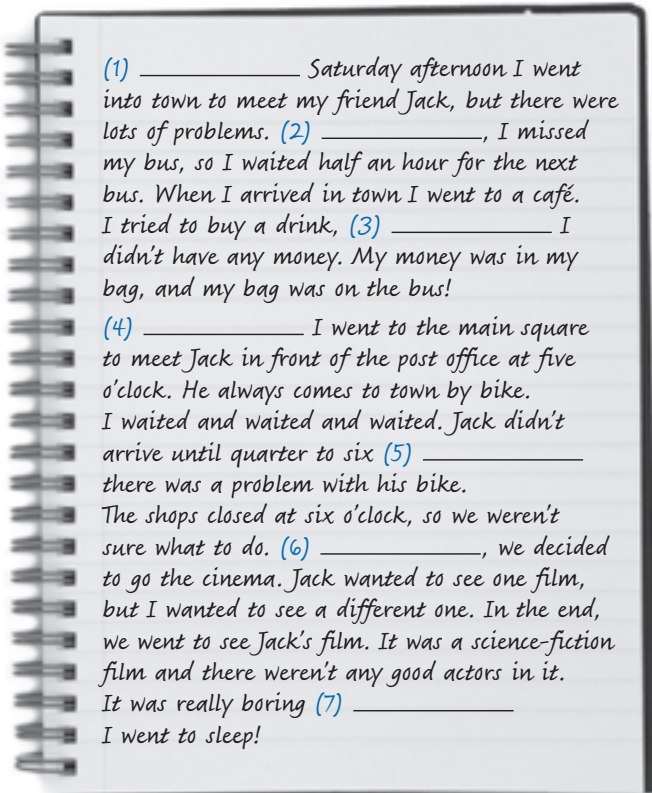 (1) ____________ Saturday afternoon I went
into town to meet my friend Jack, but there were
lots of problems. (2) ____________, I missed
my bus, so I waited half an hour for the next
bus. When I arrived in town I went to a café.
I tried to buy a drink, (3) ____________ I
didn't have any money. My money was in my
bag, and my bag was on the bus!
(4) ____________ I went to the main square
to meet Jack in front of the post office at five
o'clock. He always comes to town by bike.
I waited and waited and waited. Jack didn't
arrive until quarter to six (5) ____________
there was a problem with his bike.
The shops closed at six o'clock, so we weren't
sure what to do. (6) ____________, we decided
to go the cinema. Jack wanted to see one film,
but I wanted to see a different one. In the end,
we went to see Jack's film. It was a science-fiction
film and there weren't any good actors in it.
It was really boring (7) ____________
I went to sleep!